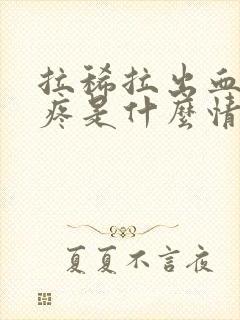 拉稀拉出血
疼是什麼情
夏夏不言夜